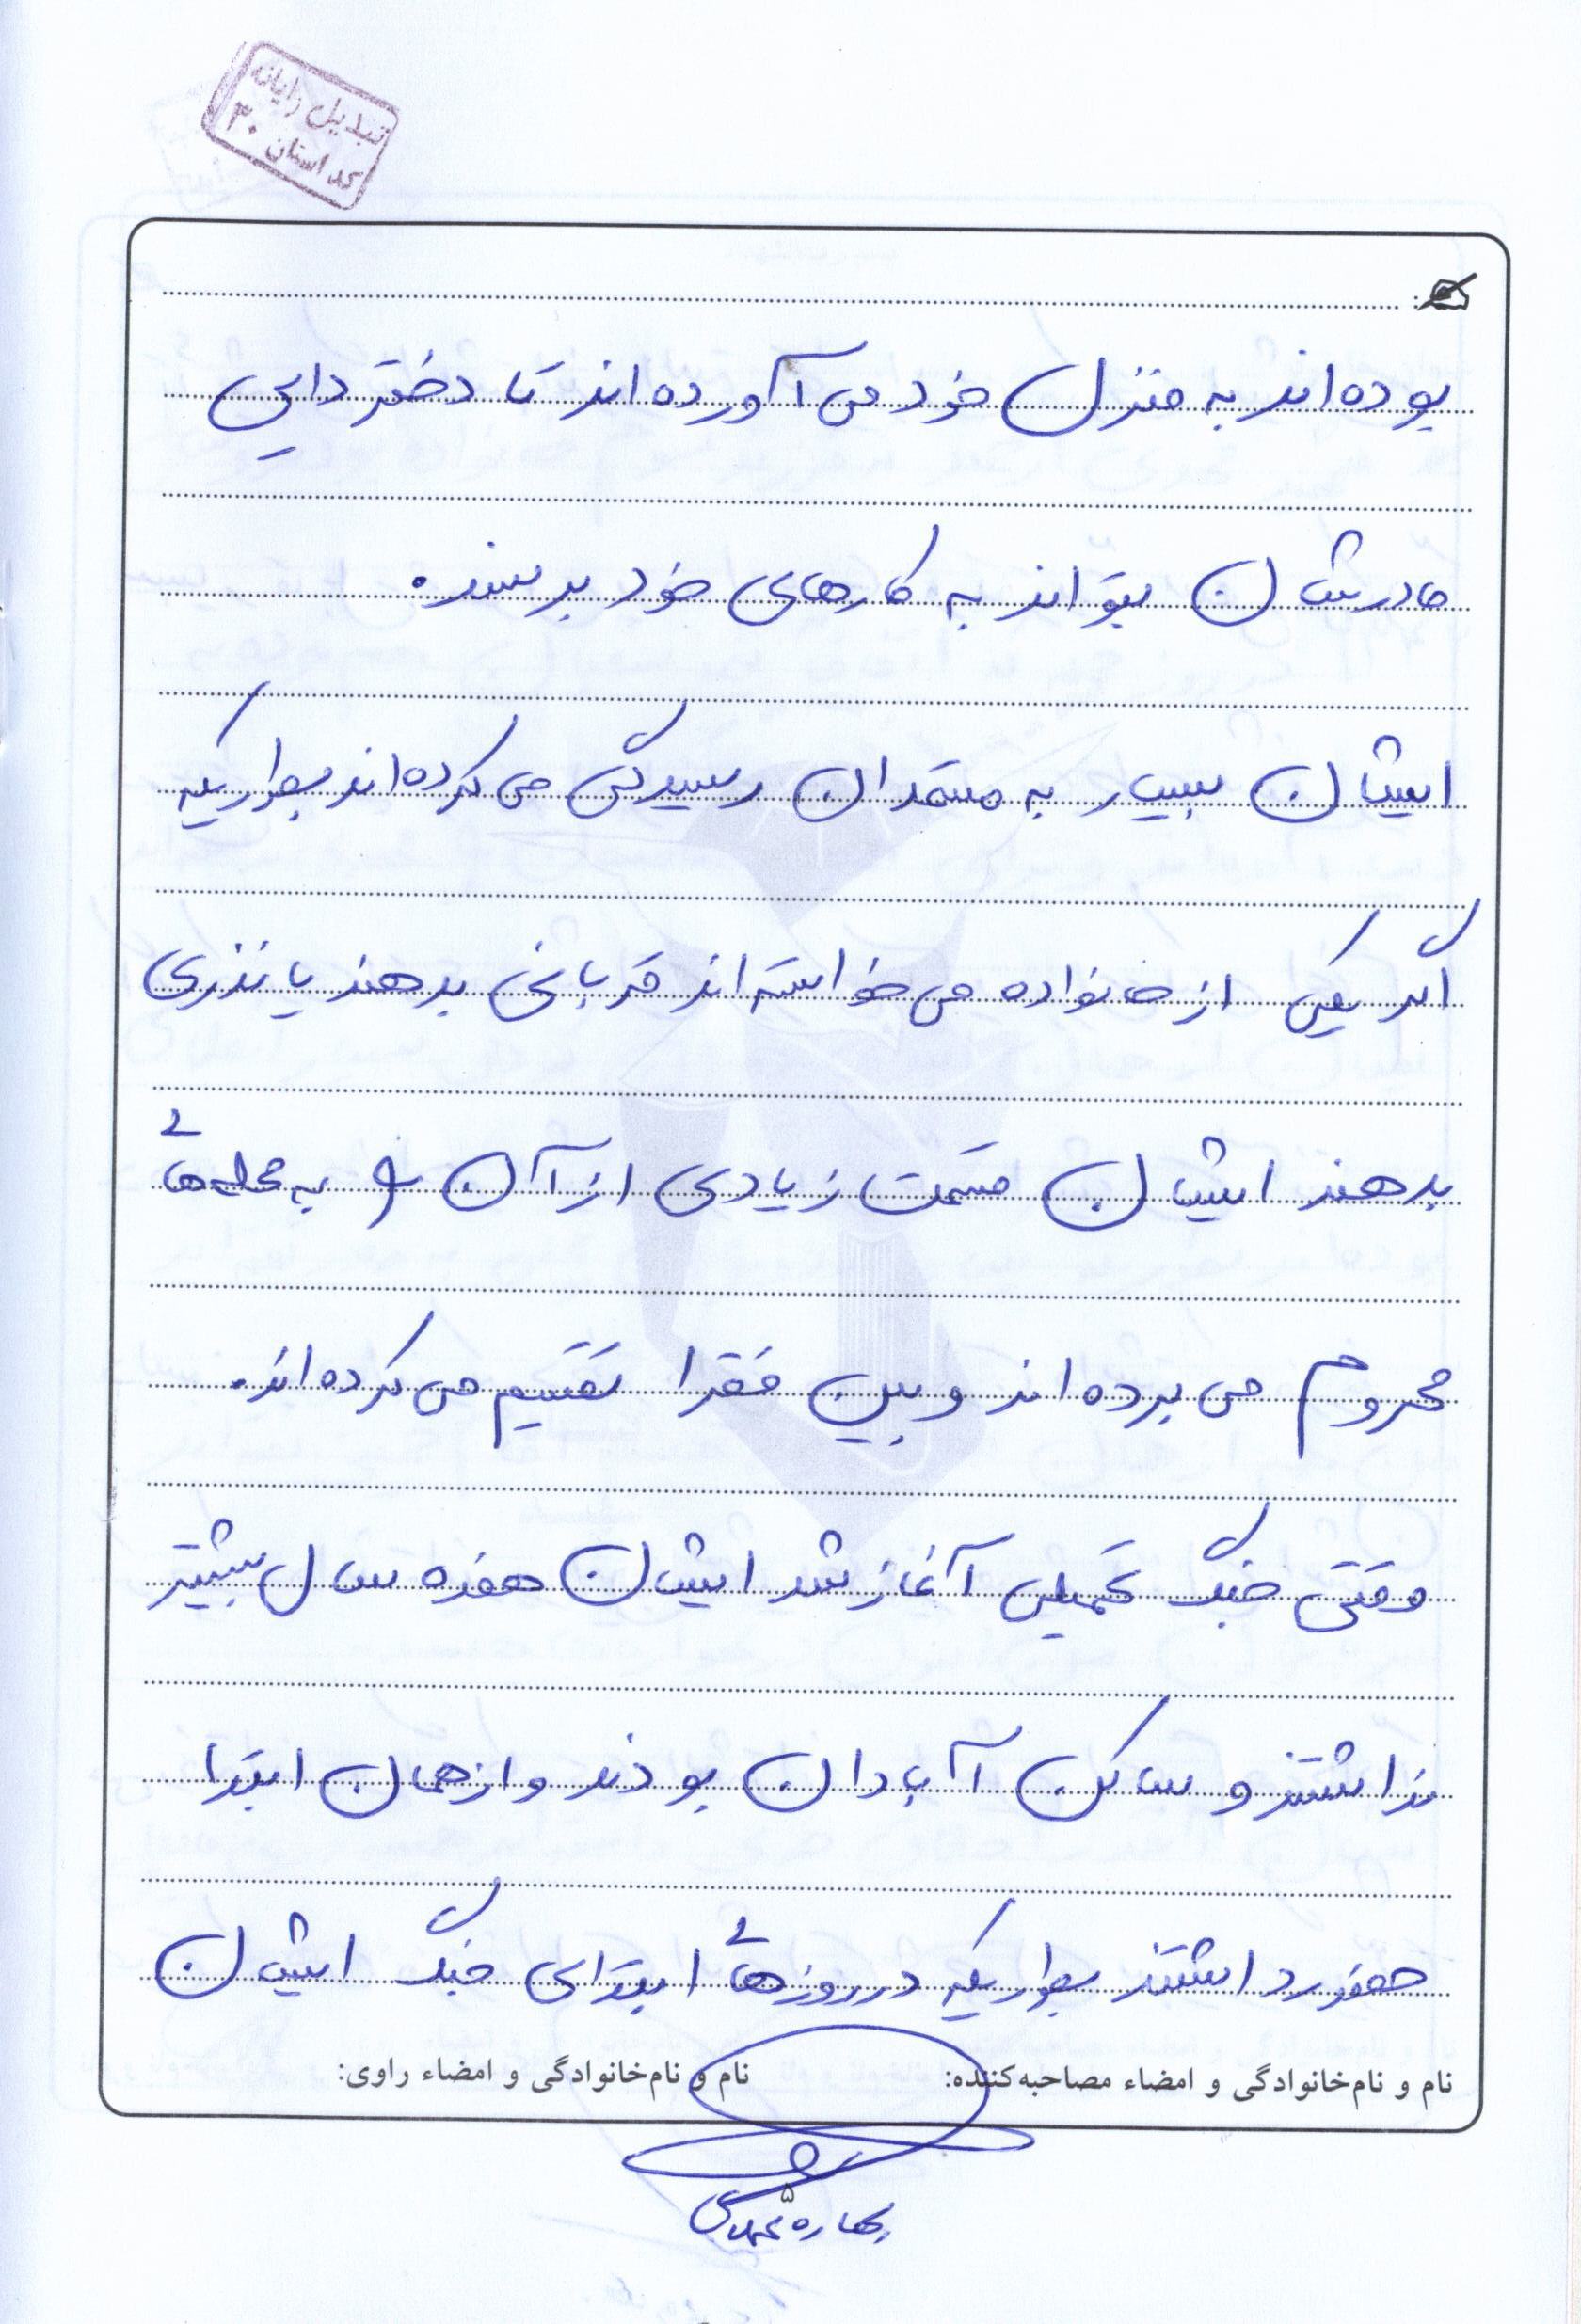 تبدیل رایانه
کد استان ۳۰
بوده‌اند به منزل خود می‌آورده‌اند تا دختر دایی
مادرشان بتواند به کارهای خود برسند.
ایشان بسیار به مستمندان رسیدگی می‌کرده‌اند بطوریکه
اگر یکی از خانواده می‌خواسته‌اند قربانی بدهند یا نذری
بدهند ایشان قسمت زیادی از آن به محله‌های
محروم می‌برده‌اند و بین فقرا تقسیم می‌کرده‌اند.
وقتی جنگ تحمیلی آغاز شد ایشان هفده سال بیشتر
نداشتند و ساکن آبادان بودند و از همان ابتدا
حضور داشتند بطوریکه در روزهای ابتدای جنگ ایشان
نام و نام‌خانوادگی و امضاء مصاحبه‌کننده: نام و نام‌خانوادگی و امضاء راوی:
۵
بهاره محمدی